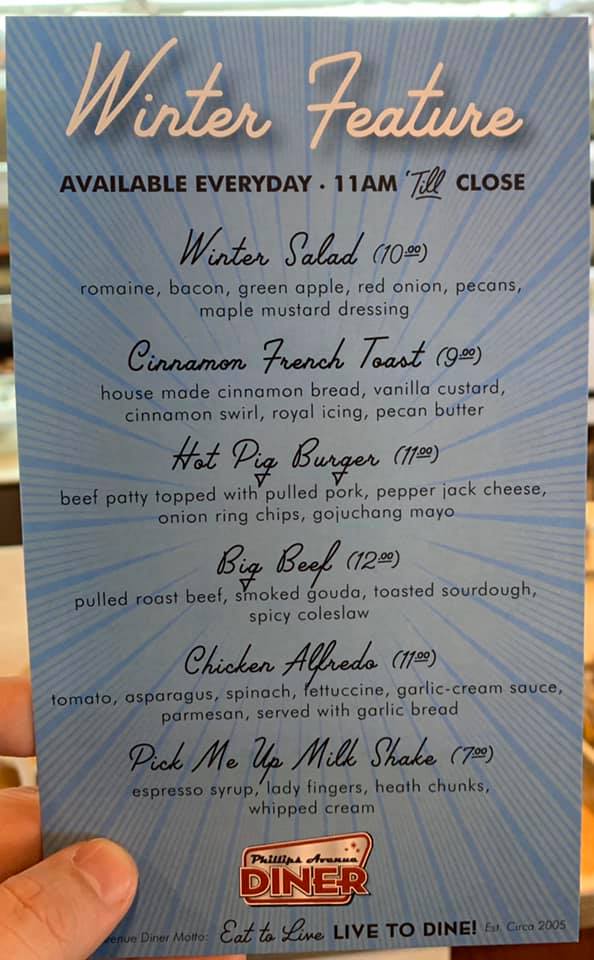 Winter Feature
AVAILABLE EVERYDAY · 11AM 'Till CLOSE
Winter Salad (10.00)
romaine, bacon, green apple, red onion, pecans,
maple mustard dressing
Cinnamon French Toast (9.00)
house made cinnamon bread, vanilla custard,
cinnamon swirl, royal icing, pecan butter
Hot Pig Burger (11.00)
beef patty topped with pulled pork, pepper jack cheese,
onion ring chips, gojuchang mayo
Big Beef (12.00)
pulled roast beef, smoked gouda, toasted sourdough,
spicy coleslaw
Chicken Alfredo (11.00)
tomato, asparagus, spinach, fettuccine, garlic-cream sauce,
parmesan, served with garlic bread
Pick Me Up Milk Shake (7.00)
espresso syrup, lady fingers, heath chunks,
whipped cream
Phillips Avenue
DINER
Diner Motto: Eat to Live LIVE TO DINE! Est. Circa 2005